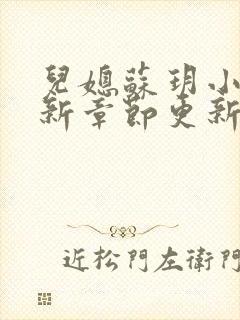 兒媳蘇玥小
新章節更新
近松門左衛門